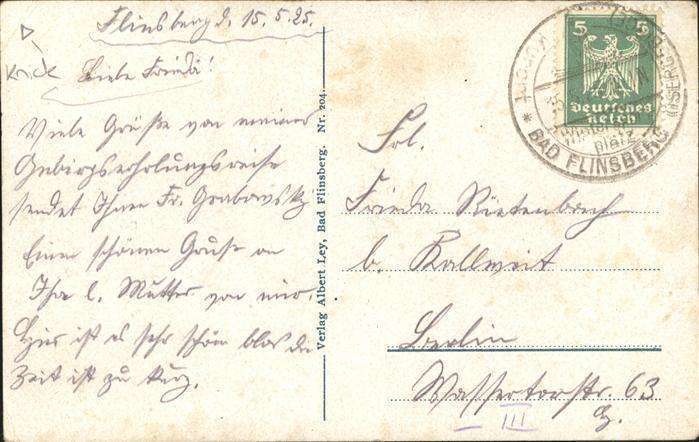 Flinsberg d. 15.5.25.
Knick
Liebe Frieda!
Viele Grüße von meiner
Gebirgserholungsreise
sendet Ihnen Fr. Grabowsky
Einen schönen Gruß an
Ihre l. Mutter von mir.
Hier ist es sehr schön blos die
Zeit ist zu kurz.
Verlag Albert Ley, Bad Flinsberg. Nr. 204.
5 5
Deutsches
Reich
BAD FLINSBERG
(ISERGEB.)
Kurort
platz
Frl.
Frieda Rietenbach
b. Kallweit
Berlin
Wassertorstr. 63
III